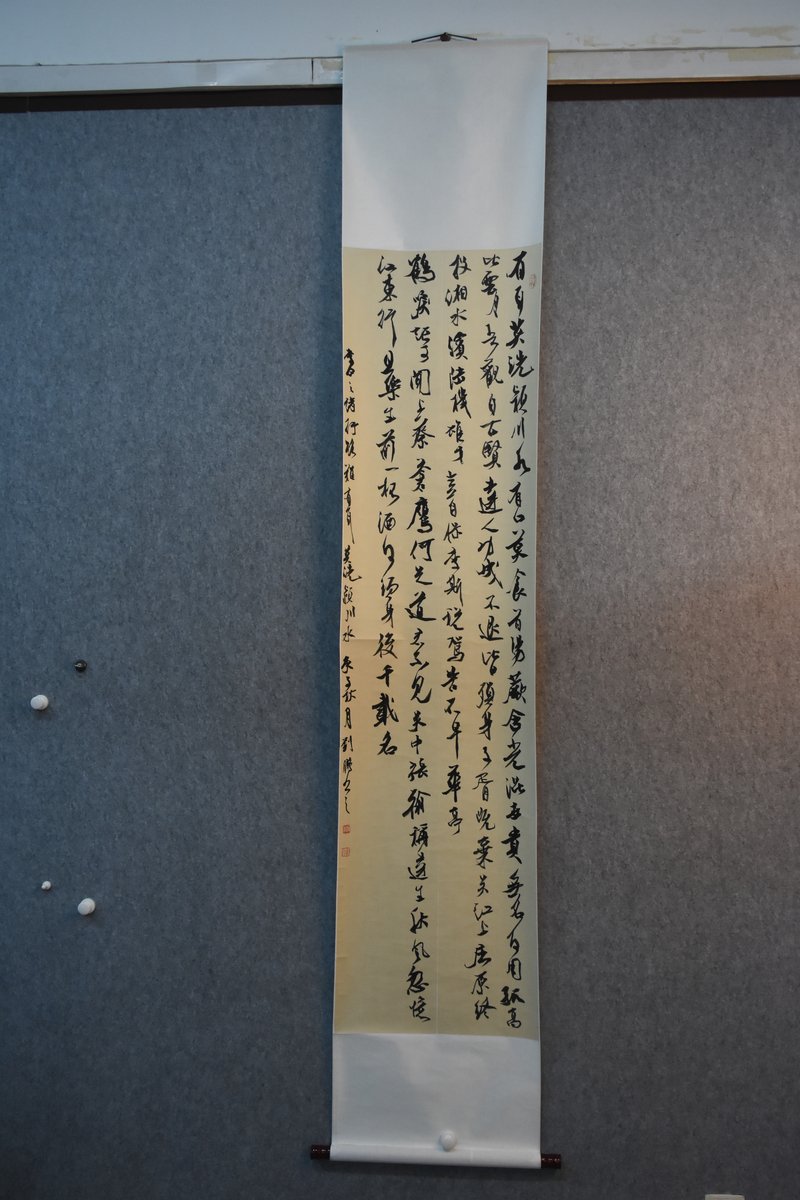 有耳莫洗潁川水有口莫食首陽蕨含光混世貴無名何用孤高
比雲月吾觀自古賢達人功成不退皆殞身子胥既棄吳江上屈原終
投湘水濱陸機雄才豈自保李斯稅駕苦不早華亭
鶴唳詎可聞上蔡蒼鷹何足道君不見吳中張翰稱達生秋風忽憶
江東行且樂生前一杯酒何須身後千載名
之詩行路難有耳莫洗潁川水 秋月劉 書之